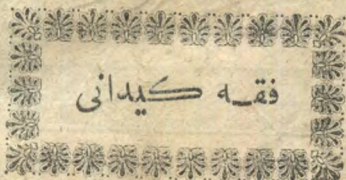 فقه كيدانى